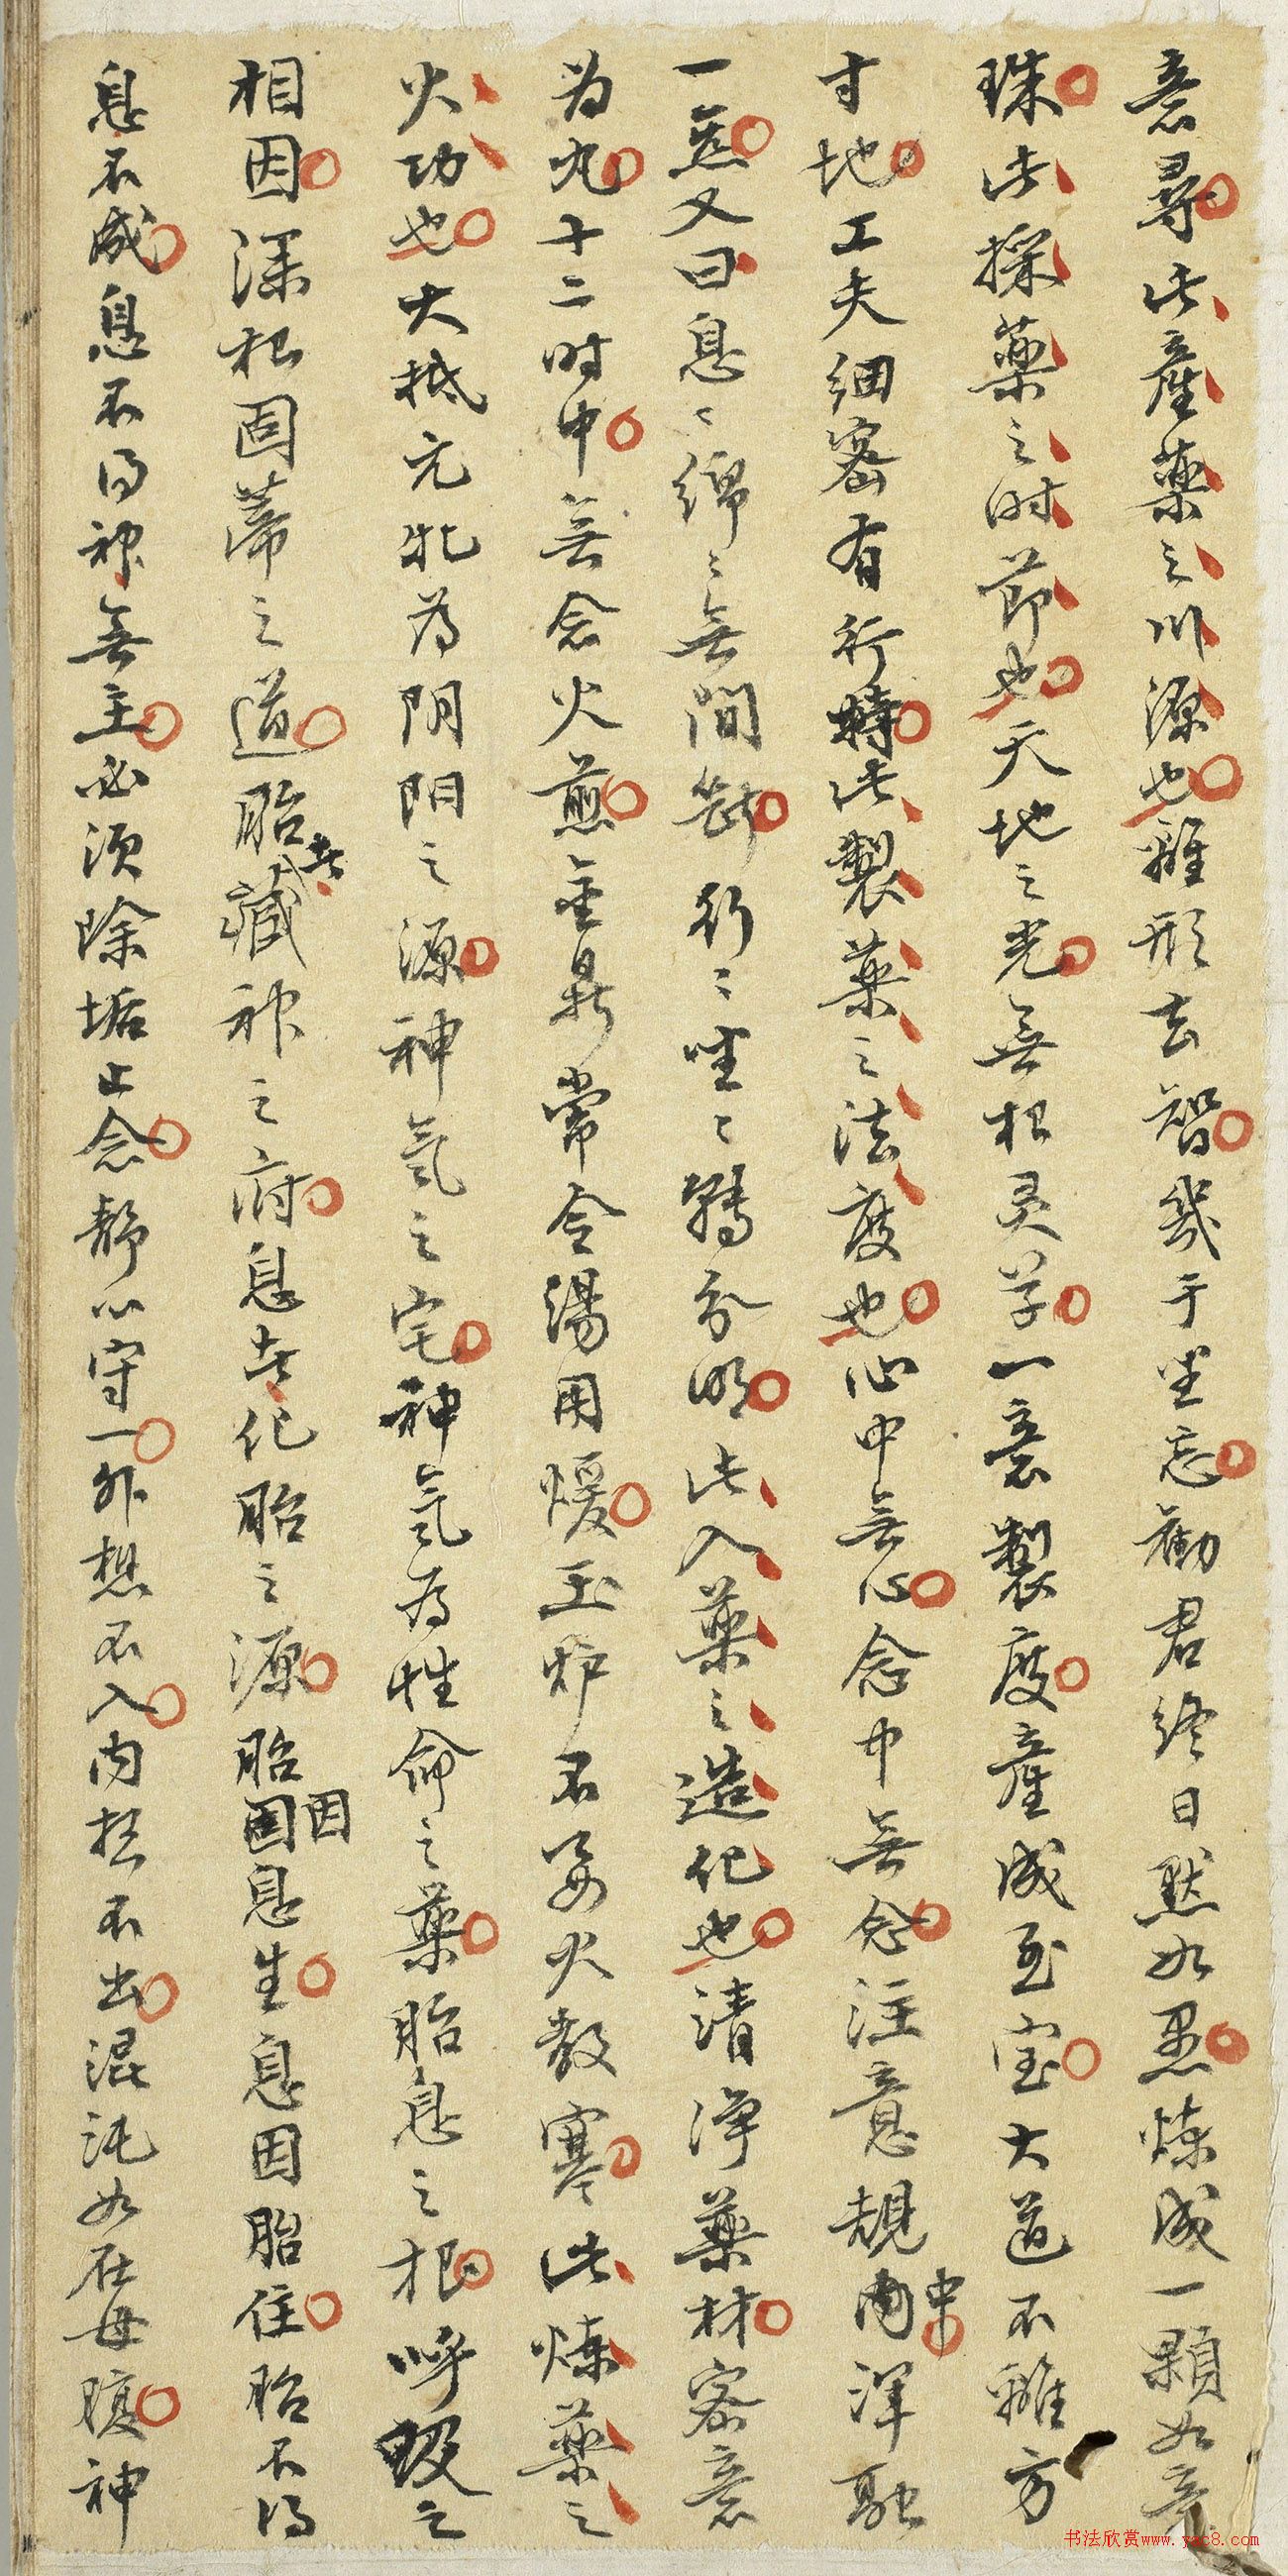 意尋此產藥之川源也離形去智幾于坐忘勸君終日默如愚煉成一顆如意
珠此採藥之时節也天地之光無根灵草一意製度產成至宝大道不離方
寸地工夫細密有行時此製藥之法度也心中無心念中無念注意規中渾融
一炁又曰息〻綿〻無間斷行〻坐〻轉分明此入藥之造化也清浄藥材密意
为丸十二时中無念火煎金鼎常令湯用煖玉炉不要火教寒此煉藥之
火功也大抵元牝为阴阳之源神氣之宅神氣为性命之藥胎息之根呼吸之
相因深根固蒂之道胎者藏神之府息者化胎之源胎因息生息因胎住胎不得
息不成息不得神無主必須除垢止念靜心守一外想不入内想不出混沌如在母腹神
书法欣赏www.yac8.com